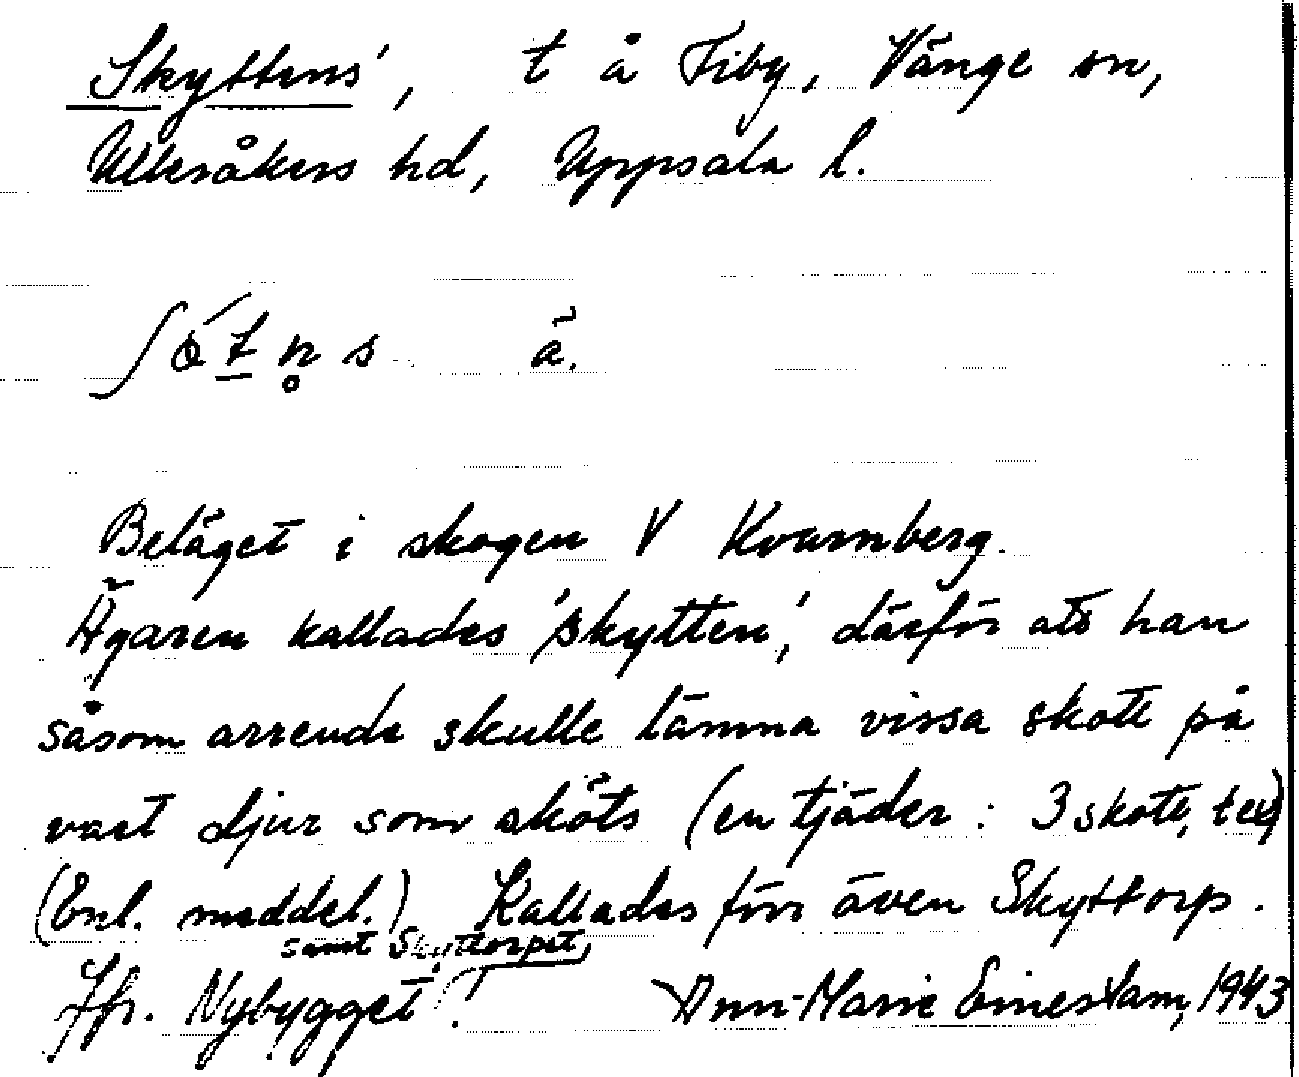 Skyttens', t å Fiby, Vänge sn,
Ulleråkers hd, Uppsala l.
ʃǿt̲n̥s ã.
Beläget i skogen V Kvarnberg.
Ägaren kallades 'skytten', därför att han
såsom arrende skulle lämna vissa skott på
vart djur som sköts (en tjäder: 3 skott, t ex)
(Enl. meddel.) Kallades förr även Skyttorp.
samt Skyttorpet,
Jfr. Nybygget. Ann-Marie Einerstam, 1943